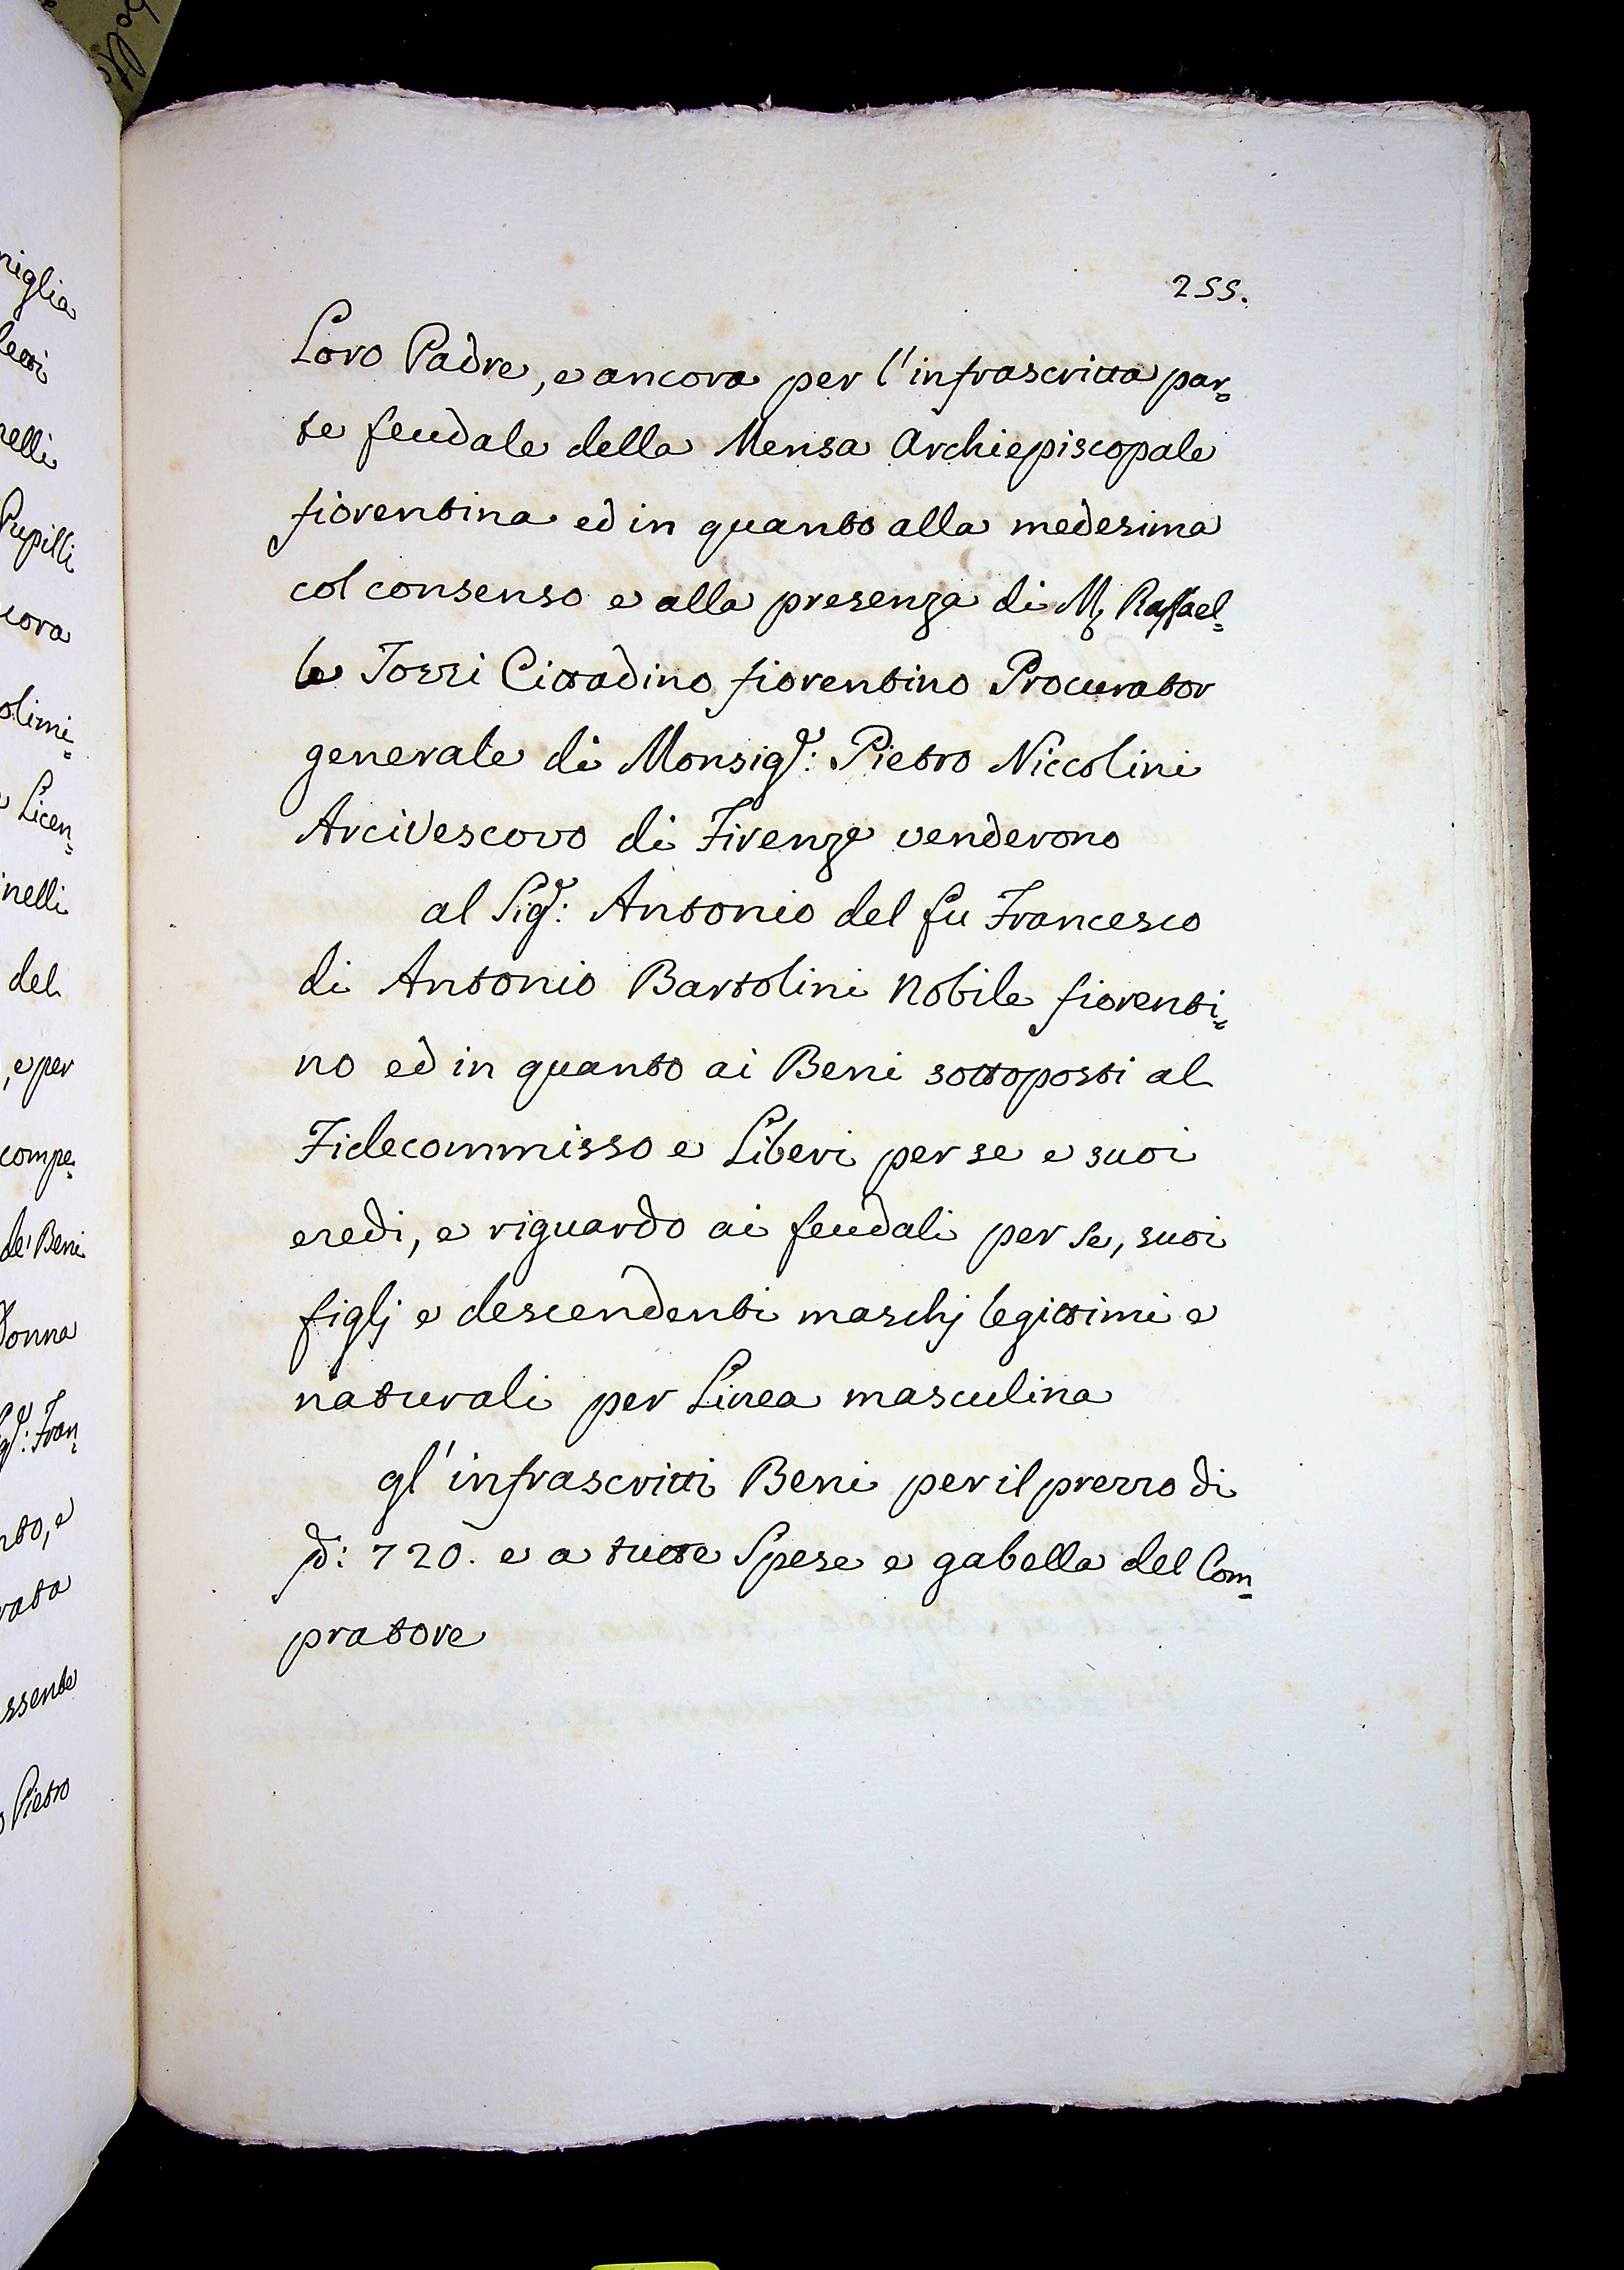 255.
Loro Padre, e ancora per l'infrascritta par=
te feudale della Mensa Archiepiscopale
fiorentina ed in quanto alla medesima
col consenso e alla presenza di M. Raffael=
le Tozzi Cittadino fiorentino Procurator
generale di Monsig.r: Pietro Niccolini
Arcivescovo di Firenze venderono
al Sig.r: Antonio del fu Francesco
di Antonio Bartolini Nobile fiorenti=
no ed in quanto ai Beni sottoposti al
Fidecommisso e Liberi per se e suoi
eredi, e riguardo ai feudali per se, suoi
figlj e descendenti maschj legittimi e
naturali per Linea masculina
gl'infrascritti Beni per il prezzo di
720. e a tutte Spese e gabella del Com=
pratore
niglia
nelli
Pupilli
cora
olimi=
Licen=
inelli
del
, e per
compe=
de' Beni
Donna
g.r: Fran=
nto, e
rata
ssente
Pietro